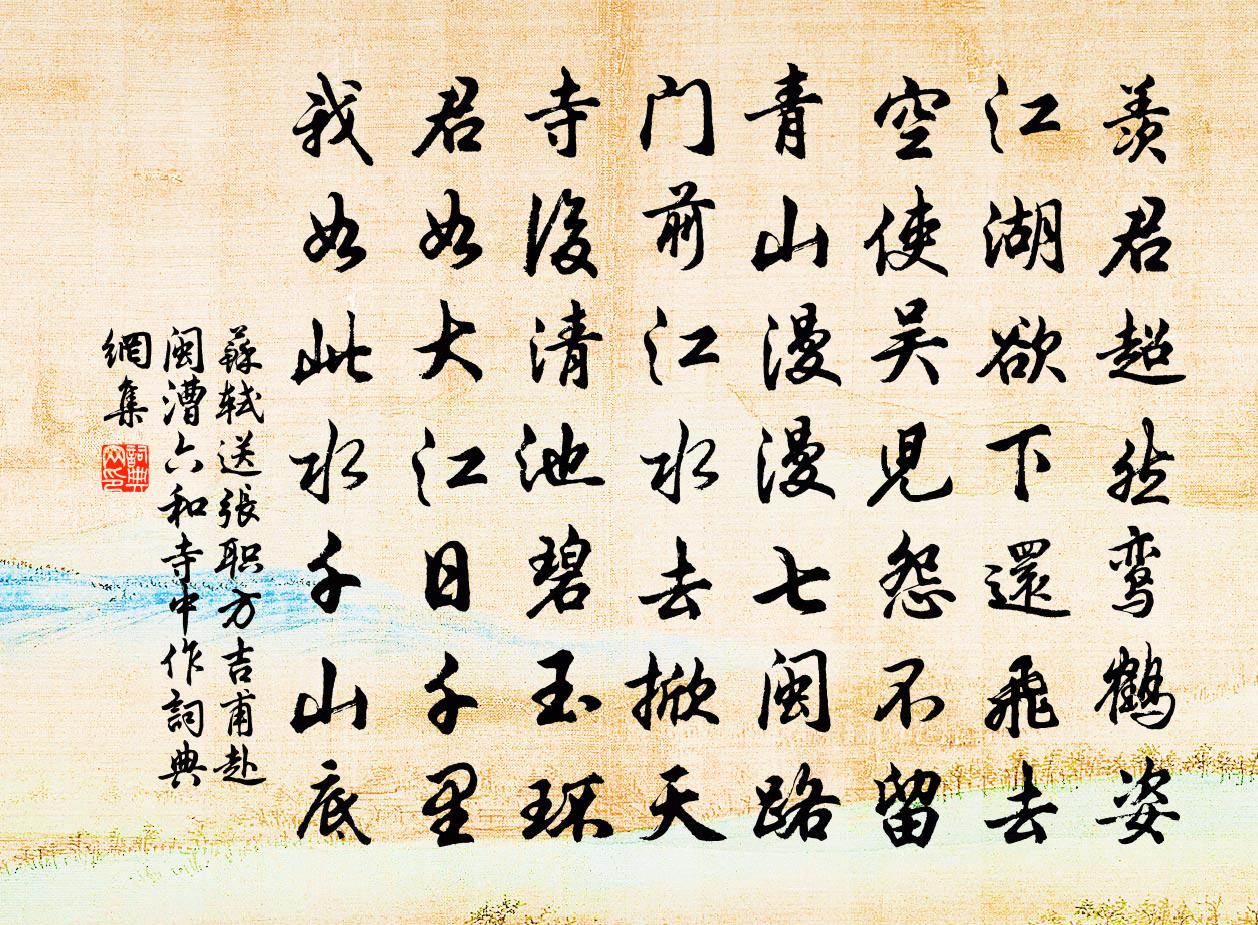 羨君超然鸾鶴姿
江湖欲下還飛去
空使吴児怨不留
青山漫漫七闽路
门前江水去掀天
寺後清池碧玉环
君如大江日千里
我如此水千山底
蘇轼送張职方吉甫赴
闽漕六和寺中作詞典
網集
詞典
网印